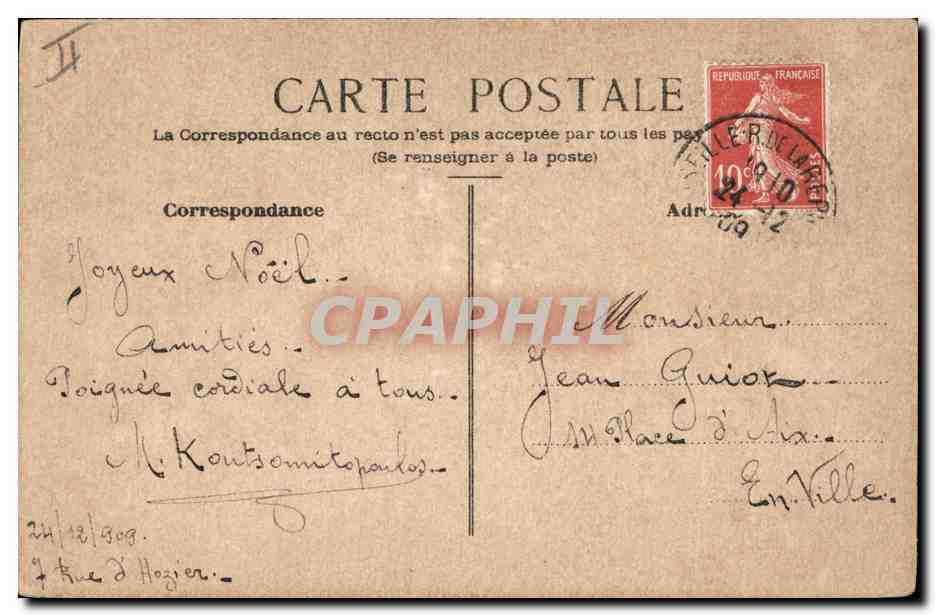 II
CARTE POSTALE
La Correspondance au recto n'est pas acceptée par tous les pa
(Se renseigner à la poste)
REPUBLIQUE FRANÇAISE
10c
POSTES
EILLE-R. DE LA REP
18 10
24 -12
09
Correspondance
Adr
Joyeux Noël.
Amitiés.
Poignée cordiale à tous.
M. Koutsomitopoulos
24/12/909.
7 Rue d'Hozier.
Monsieur
Jean
14 Place d'Aix.
En Ville.
CPAPHIL